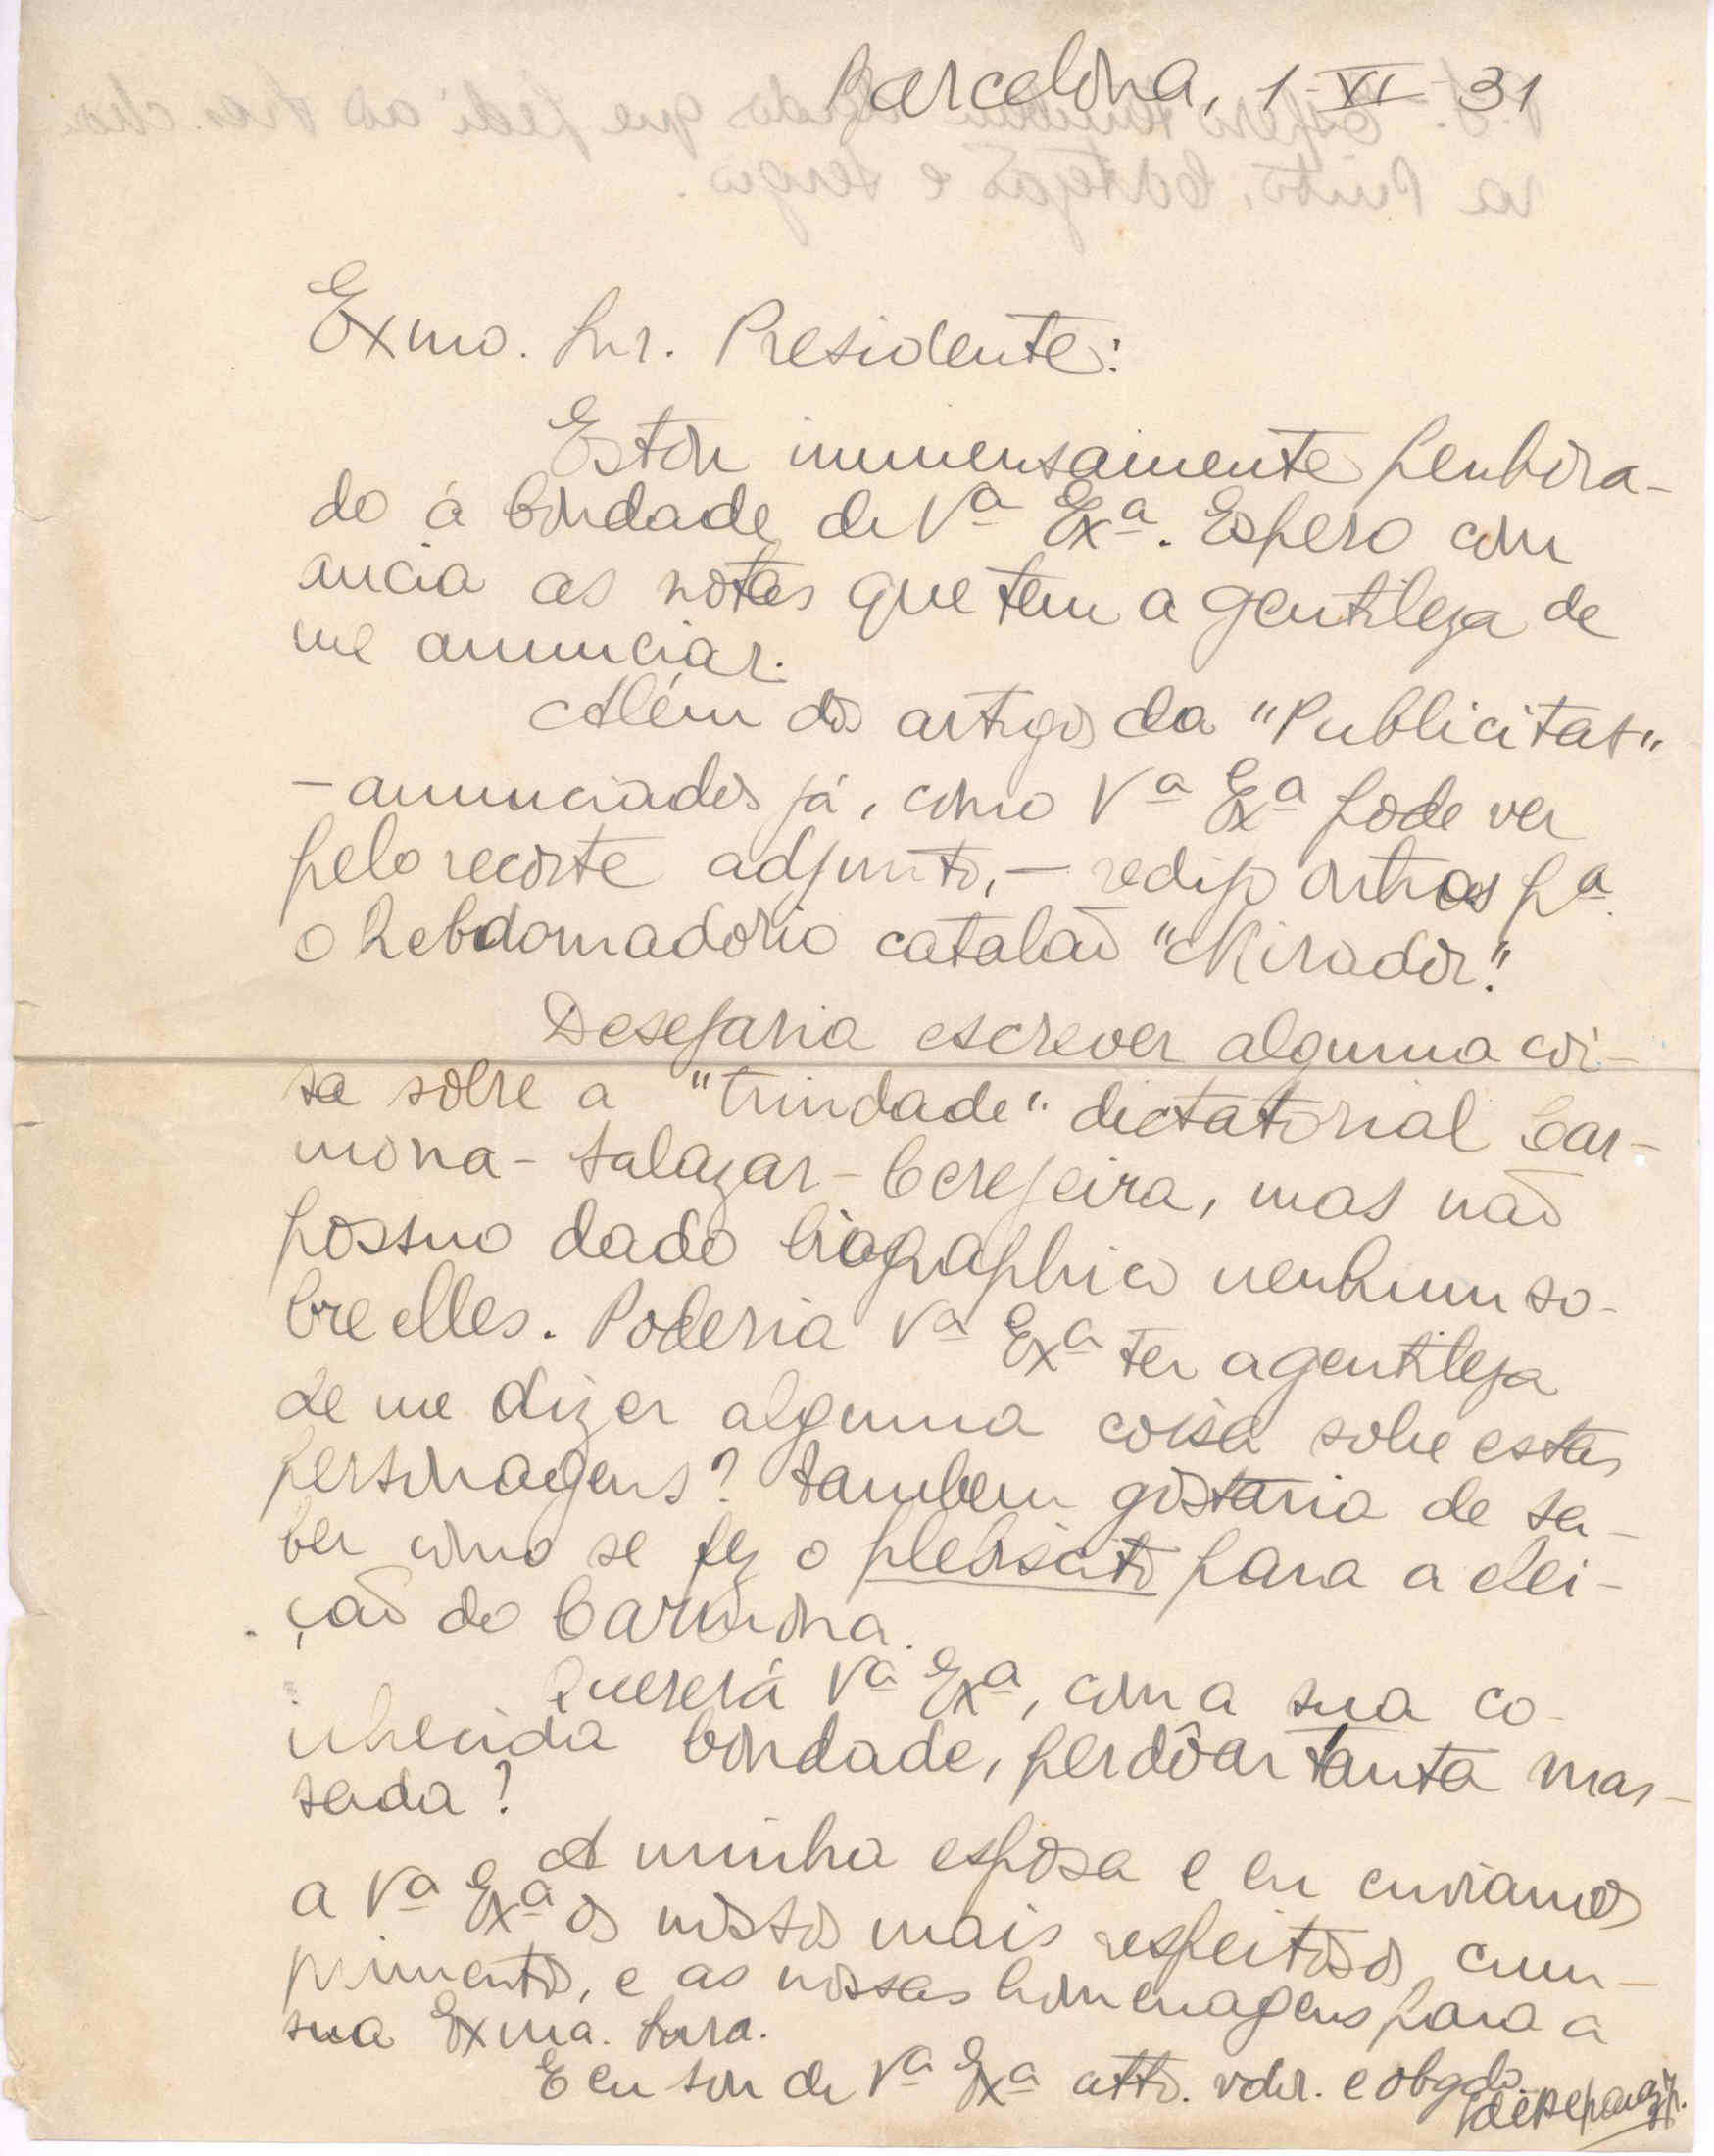 Barcelona, 1-VI-31
Exmo. Snr. Presidente:
Estou immensamente penhora-
do á bondade de Vª Exª. Espero com
ancia as notas que tem a gentileza de
me annunciar.
Além dos artigos da "Publicitat"
- annunciados já, como Vª Exª pode ver
pelo recorte adjunto, - redijo outros pª
o hebdomadario catalão "Mirador".
Desejaria escrever alguma coi-
sa sobre a "trindade" dictatorial Car-
mona - Salazar - Cerejeira, mas não
possuo dado biographico nenhum so-
bre elles. Poderia Vª Exª ter a gentileza
de me dizer alguma coisa sobre estas
personagens? Tambem gostaria de sa-
ber como se fez o plebiscito para a elei-
ção do Carmona.
Quererá Vª Exª, com a sua co-
nhecida bondade, perdôar tanta mas-
sada?
A minha esposa e eu enviamos
a Vª Exª os nossos mais respeitosos cum-
primentos, e as nossas homenagens para a
sua Exma. Snra.
E eu sou de Vª Exª atto. vdor. e obgdo.
P.S. Espero tambem dados que pedi ao Dres. Cha-
va Pinto, Cortesão e Sergio.